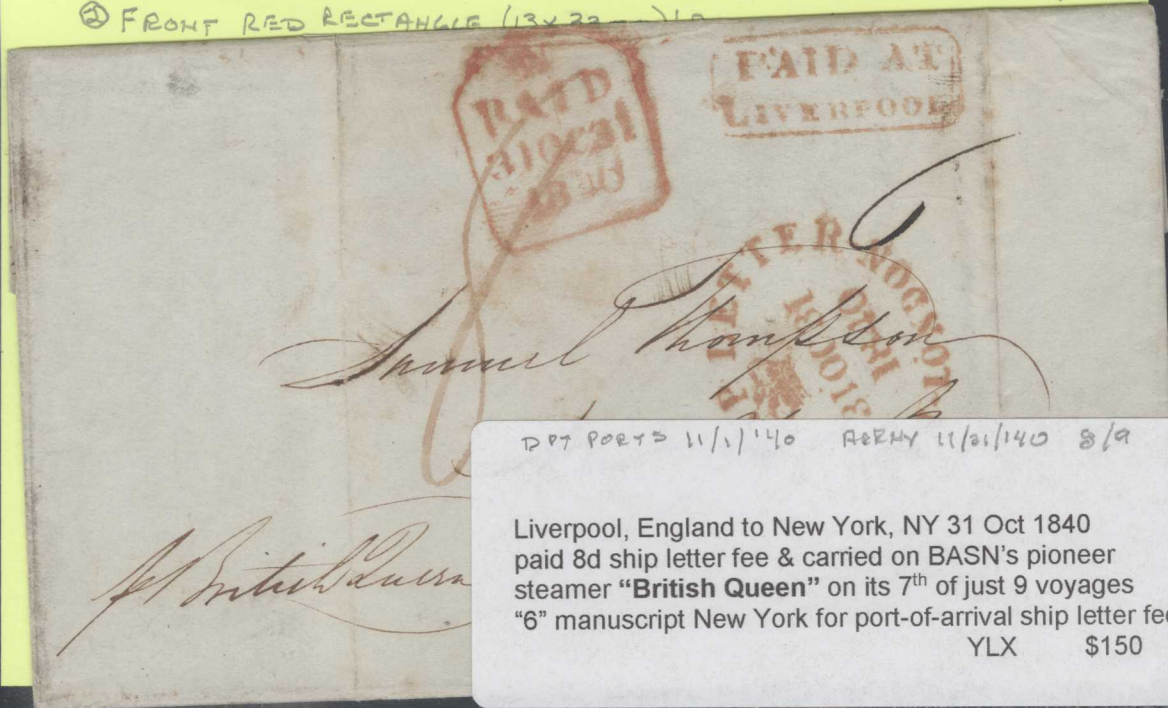 ② FRONT RED RECTANGLE (13 x 22
PAID
31 OC 31
1840
PAID AT
LIVERPOOL
6
8
LETTER LONDON
1840
31 OC 31
Samuel Thompson
p British Queen
DPT PORTS 11/1/'40 11/21/'40 8/9
Liverpool, England to New York, NY 31 Oct 1840
paid 8d ship letter fee & carried on BASN's pioneer
steamer “British Queen” on its 7th of just 9 voyages
“6” manuscript New York for port-of-arrival ship letter fee
YLX $150